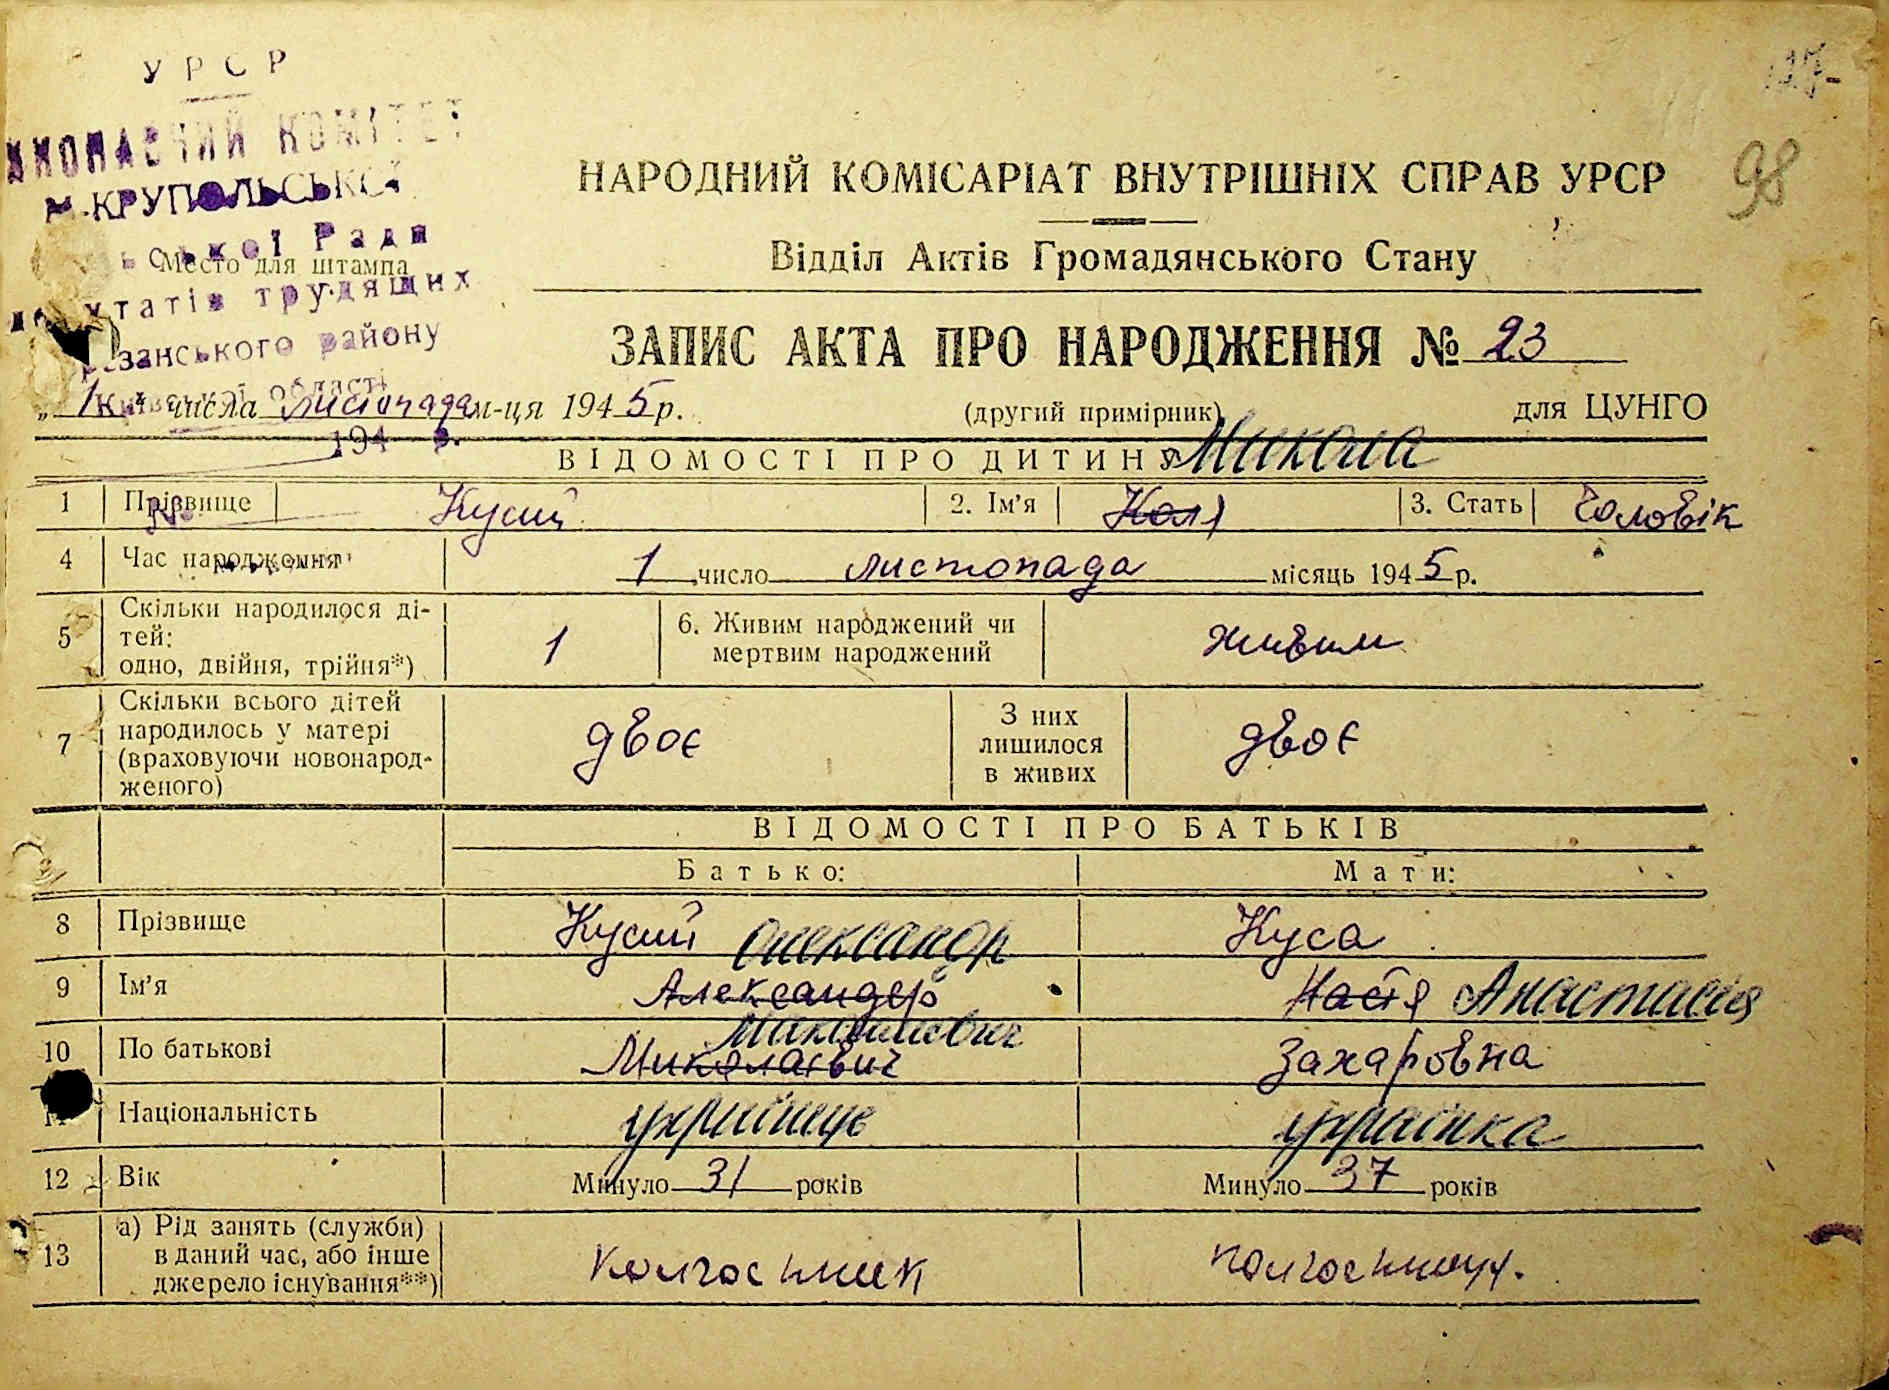 УРСР
ВИКОНАВЧИЙ КОМІТЕТ
М-КРУПОЛЬСЬКОЇ
ської Ради
Место для штампа
депутатів трудящих
занського району
Київської області
194 р.
98
НАРОДНИЙ КОМІСАРІАТ ВНУТРІШНІХ СПРАВ УРСР
Відділ Актів Громадянського Стану
ЗАПИС АКТА ПРО НАРОДЖЕННЯ № 23
„ 1 " числа листопада м-ця 1945 р. (другий примірник) для ЦУНГО
ВІДОМОСТІ ПРО ДИТИНУ Микола
1 Прізвище Кусий 2. Ім'я Коля 3. Стать Чоловік
4 Час народження 1 число листопада місяць 1945 р.
5 Скільки народилося ді-
тей:
одно, двійня, трійня*) 1 6. Живим народжений чи
мертвим народжений живим
7 Скільки всього дітей
народилось у матері
(враховуючи новонарод-
женого) двоє З них
лишилося
в живих двоє
ВІДОМОСТІ ПРО БАТЬКІВ
Батько: Мати:
8 Прізвище Кусий Олександр Куса
9 Ім'я Александер Настя Анастасія
Максимович
10 По батькові Миколаєвич Захаровна
11 Національність українець українка
12 Вік Минуло 31 років Минуло 37 років
13 а) Рід занять (служби)
в даний час, або інше
джерело існування**) колгосник